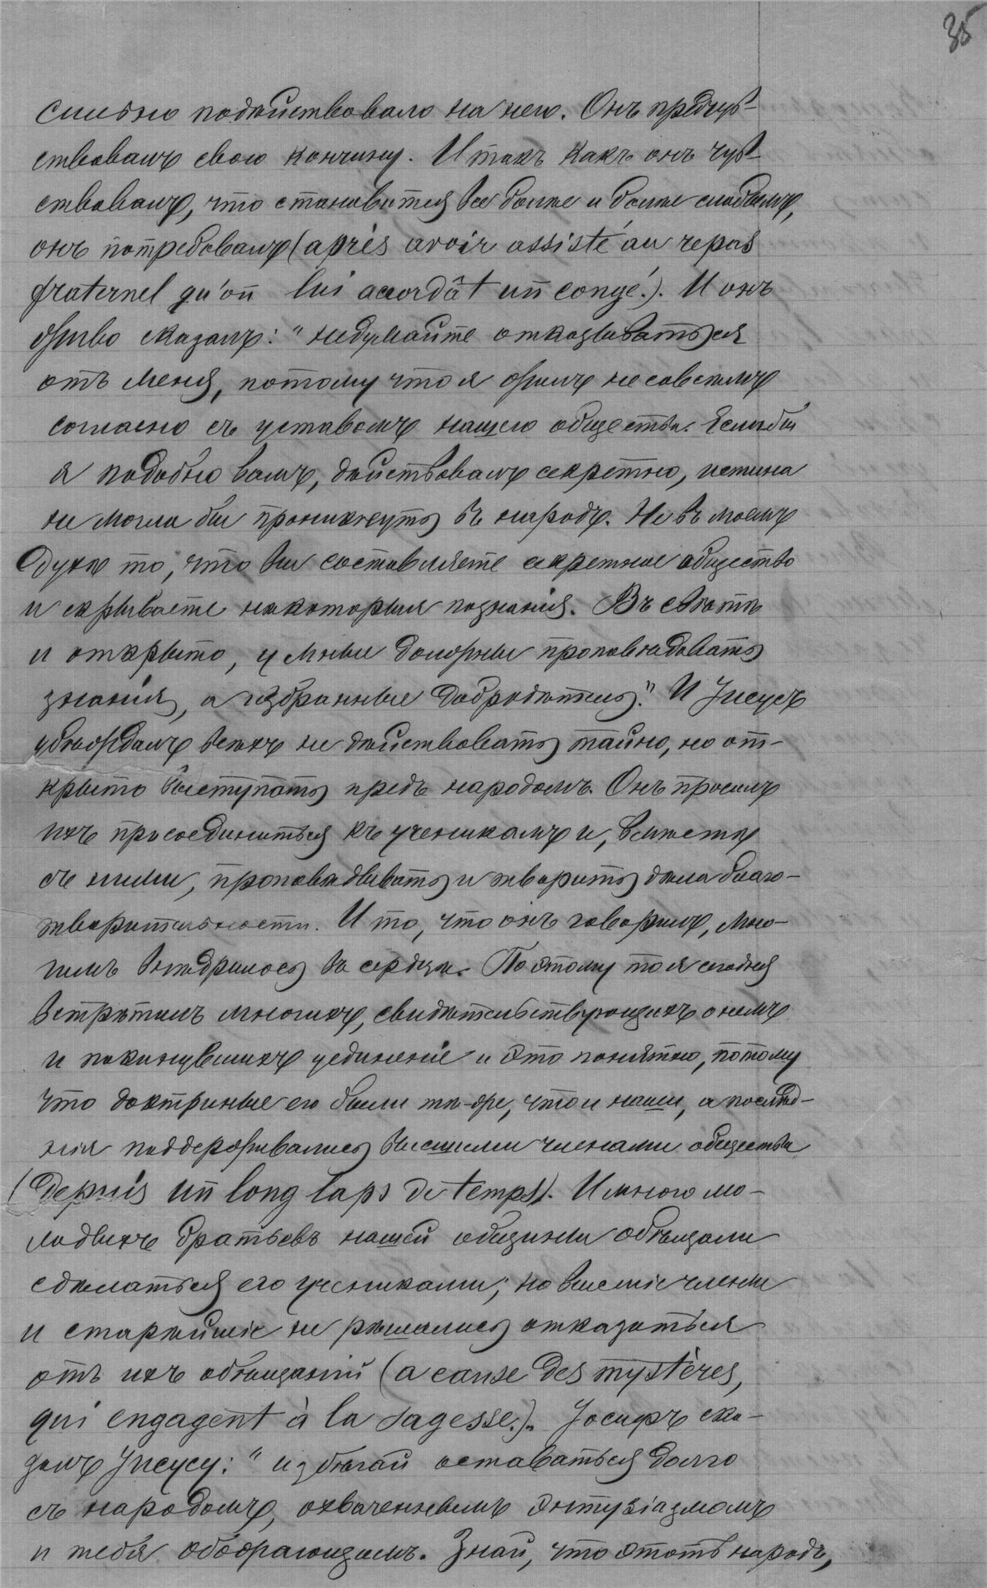 35
сильно подѣйствовало на него. Онъ предчув-
ствовалъ свою кончину. И такъ какъ онъ чув-
ствовалъ, что становится все болѣе и болѣе слабымъ,
онъ потребовалъ (après avoir assisté au repas
fraternel qu'on lui accordât un congé.). И онъ
живо сказалъ: "не думайте отказываться
отъ меня, потому что я жилъ не совсѣмъ
согласно съ уставомъ нашего общества. Если бы
я подобно вамъ, дѣйствовалъ секретно, истина
не могла бы проникнуть въ народъ. Не въ моемъ
духѣ то, что вы составляете секретное общество
и скрываете некоторыя познанія. Въ свѣтѣ
и открыто, умные должны проповѣдовать
знанія, а избранные добродѣтель." И Іисусъ
убѣждалъ всѣхъ не дѣйствовать тайно, но от-
крыто выступать предъ народомъ. Онъ просилъ
ихъ присоединиться къ ученикамъ и, вмѣстѣ
съ ними, проповѣдывать и творить дѣла благо-
творительности. И то, что онъ говорилъ, мно-
гимъ внѣдрилось въ сердцѣ. Поэтому то я сегодня
встрѣтилъ многихъ, свидѣтельствующихъ о немъ
и покинувшихъ уединеніе и это понятно, потому
что доктрины его были тѣ-же, что и наши, а послѣд-
нія поддерживались высшими членами общества
(depuis un long laps de temps). И много мо-
лодыхъ братьевъ нашей общины обѣщали
сдѣлаться его учениками; но высшіе члены
и старѣйшіе не рѣшались отказаться
отъ ихъ обѣщаній (a cause des mystères,
qui engagent à la sagesse.). Іосифъ ска-
залъ Іисусу: "избѣгай оставаться долго
съ народомъ, охваченнымъ энтузіазмомъ
и тебя обожающимъ. Знай, что этотъ народъ,